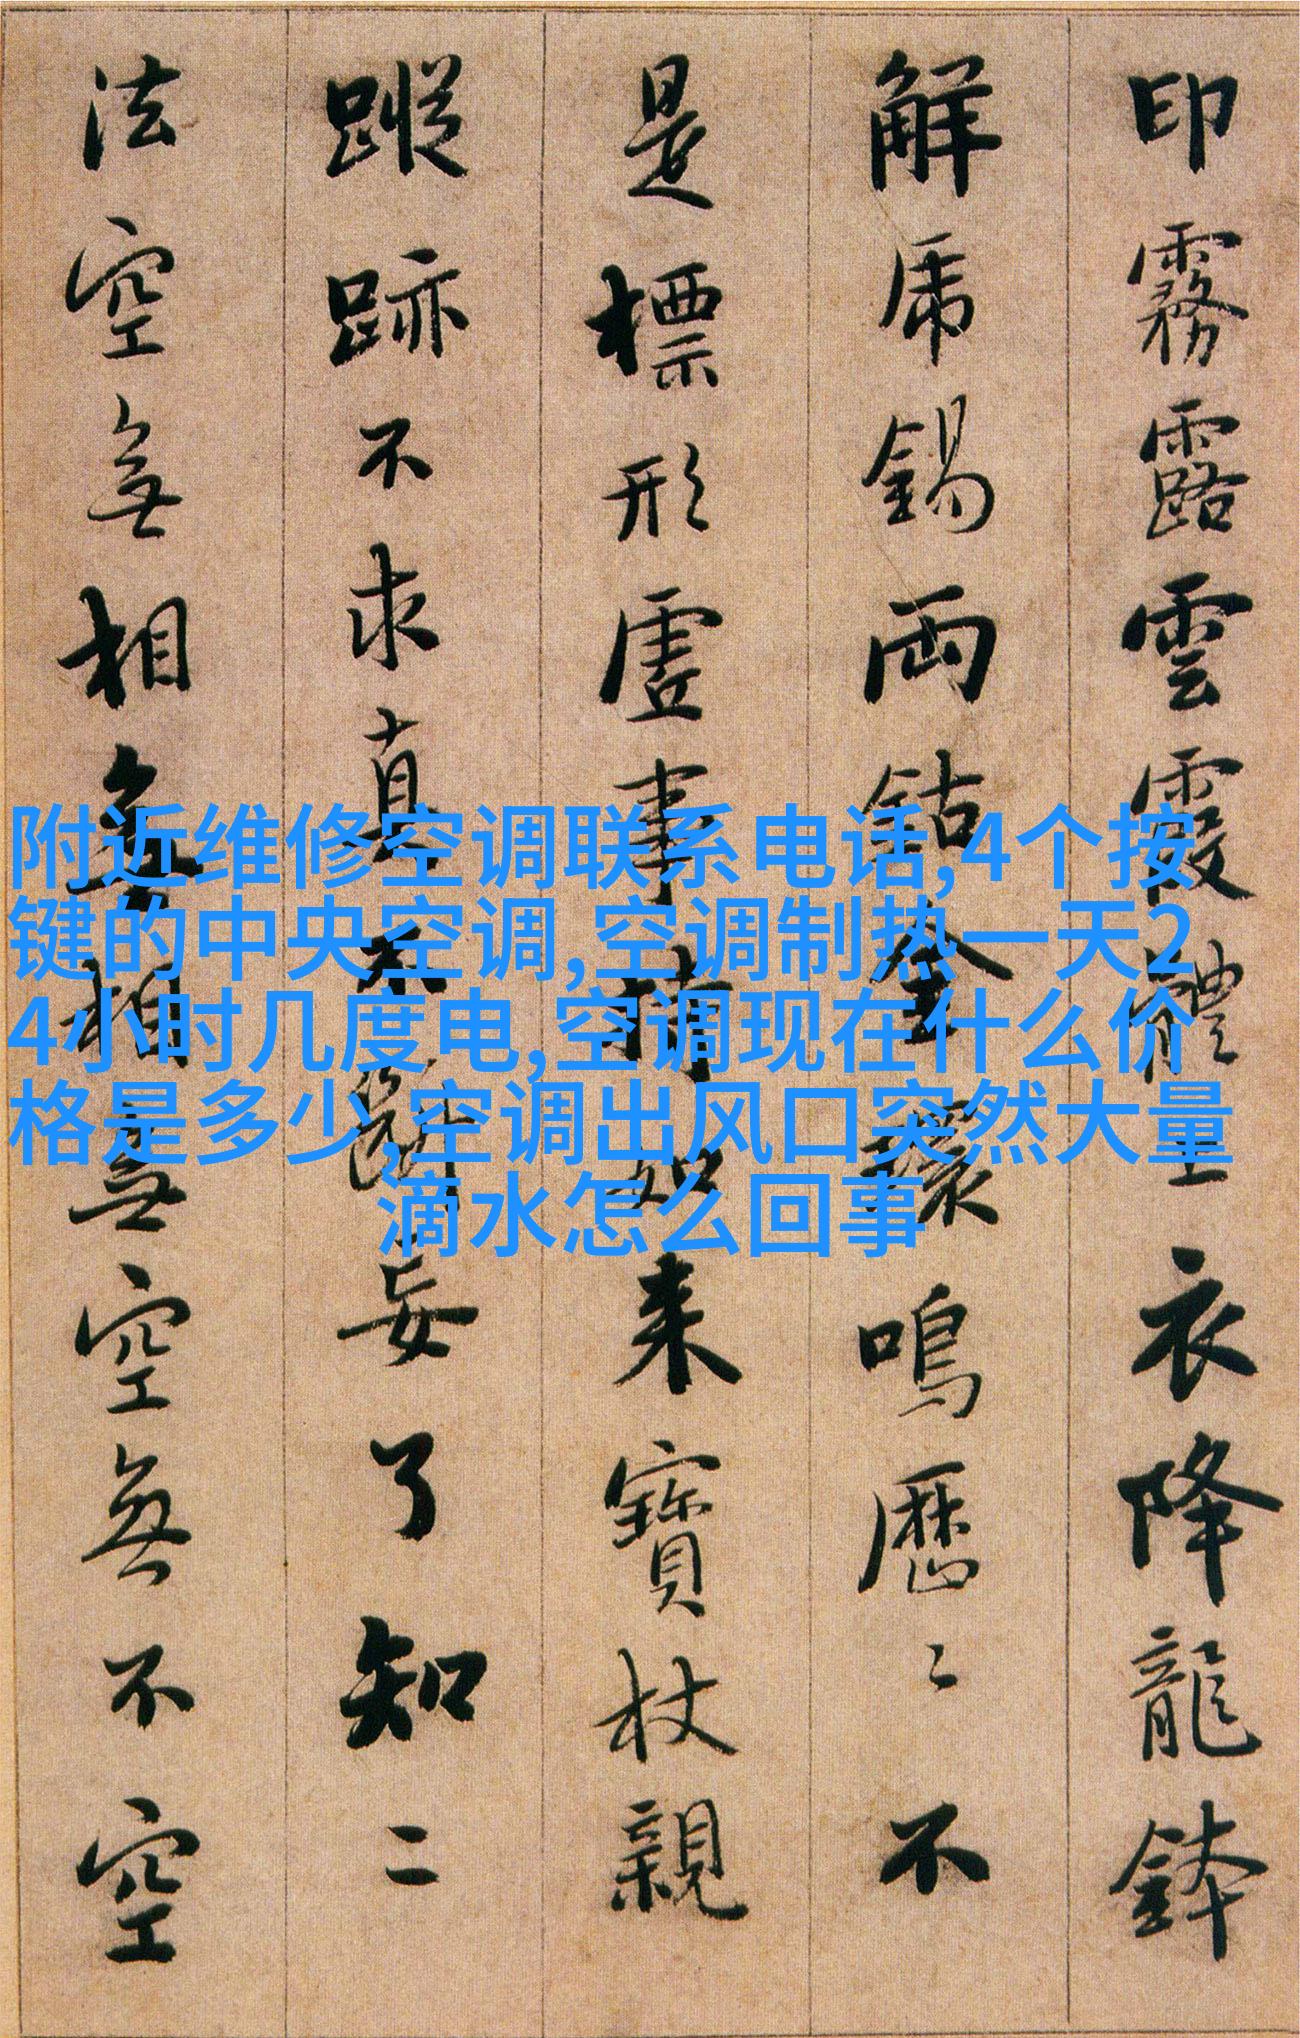 印霧露雲霞體上衣降龍鉢
解虎錫兩鈷金環鳴歷〻不
是標形虛事持如来寶杖親
蹤跡不求真不斷妄了知二
法空無相無相無空無不空
附近维修空调联系电话,4个按
键的中央空调,空调制热一天2
4小时几度电,空调现在什么价
格是多少,空调出风口突然大量
滴水怎么回事